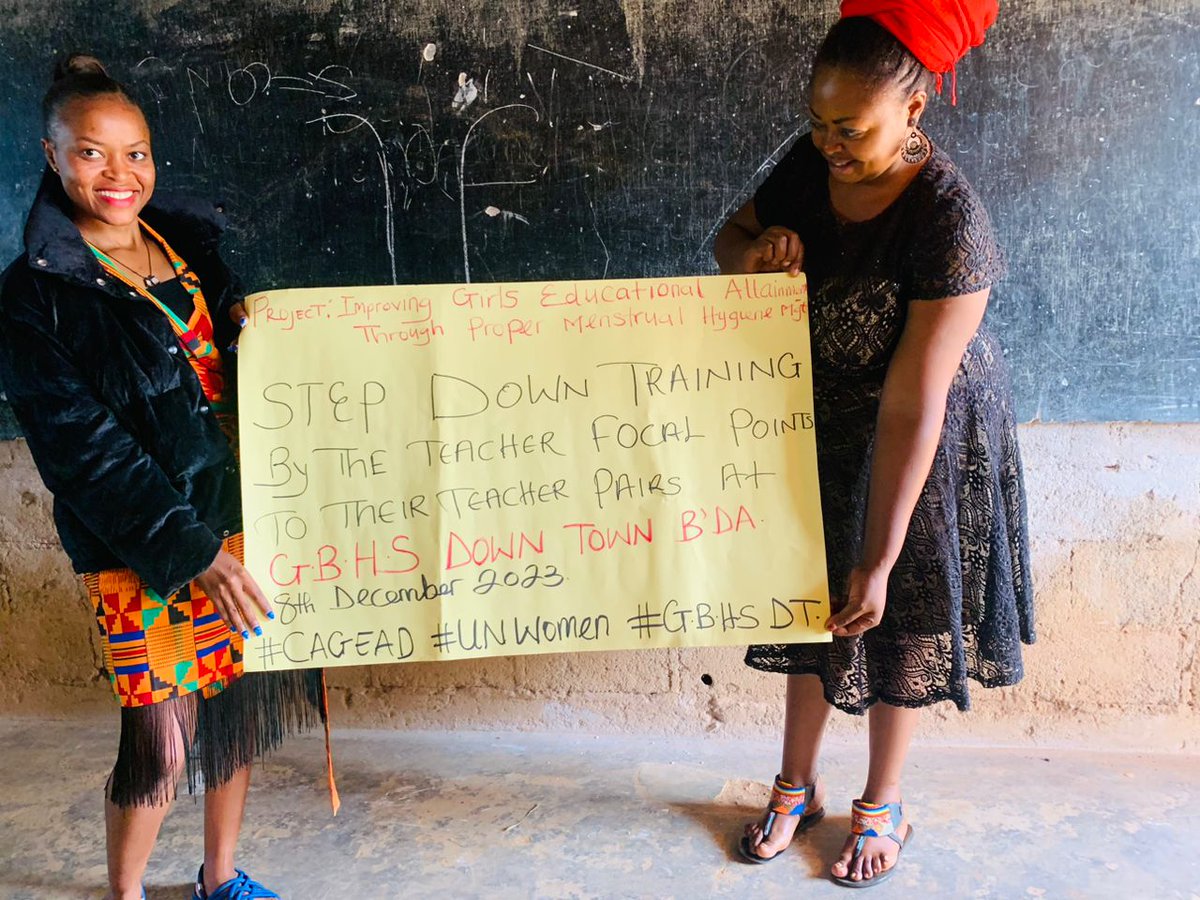 Project: Improving Girls Educational Attainment
Through Proper Menstrual Hygiene Mgt
STEP DOWN TRAINING
By THE TEACHER FOCAL POINTS
TO THEIR TEACHER PAIRS At
G.B.H.S DOWN TOWN B'DA.
8th December 2023.
#CAGEAD #UNWomen #G.B.H.S DT.